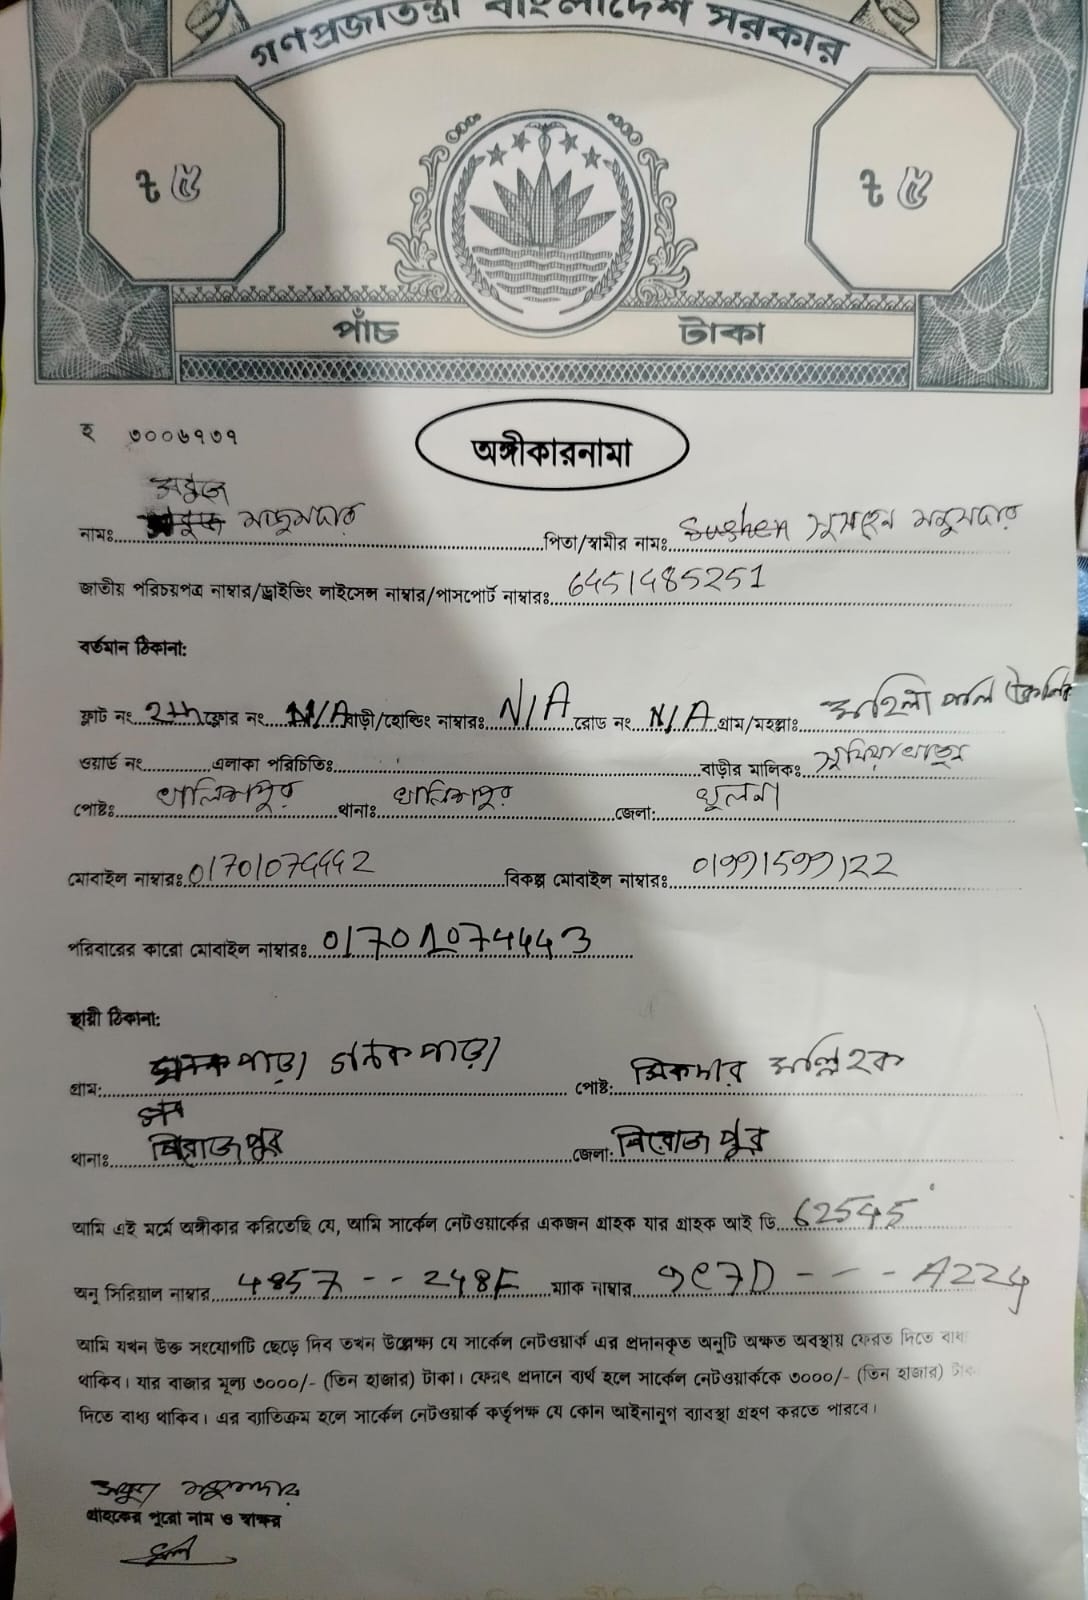 গণপ্রজাতন্ত্রী বাংলাদেশ সরকার
৳ ৫ ৳ ৫
পাঁচ টাকা
হ ৩০০৬৭৩৭
অঙ্গীকারনামা
নামঃ মজুমদার পিতা/স্বামীর নামঃ Sushen সুসেন মজুমদার
জাতীয় পরিচয়পত্র নাম্বার/ড্রাইভিং লাইসেন্স নাম্বার/পাসপোর্ট নাম্বারঃ 6451485251
বর্তমান ঠিকানা:
ফ্লাট নং 2th ফ্লোর নং N/A বাড়ী/হোল্ডিং নাম্বারঃ N/A রোড নং N/A গ্রাম/মহল্লাঃ মহিলা পলি টেকনিক
ওয়ার্ড নং এলাকা পরিচিতিঃ বাড়ীর মালিকঃ
পোষ্টঃ খালিশপুর থানাঃ খালিশপুর জেলা: খুলনা
মোবাইল নাম্বারঃ 01701074442 বিকল্প মোবাইল নাম্বারঃ 01991599122
পরিবারের কারো মোবাইল নাম্বারঃ 01701074443
স্থায়ী ঠিকানা:
গ্রাম: পাড়া পাড়া পোষ্ট: সিকদার মল্লিক
থানাঃ পিরোজপুর জেলা: পিরোজপুর
আমি এই মর্মে অঙ্গীকার করিতেছি যে, আমি সার্কেল নেটওয়ার্কের একজন গ্রাহক যার গ্রাহক আই ডি 62545
অনু সিরিয়াল নাম্বার 4857 -- 248F ম্যাক নাম্বার 9C7D --- A224
আমি যখন উক্ত সংযোগটি ছেড়ে দিব তখন উল্লেক্ষ্য যে সার্কেল নেটওয়ার্ক এর প্রদানকৃত অনুটি অক্ষত অবস্থায় ফেরত দিতে বাধ্য
থাকিব। যার বাজার মূল্য ৩০০০/- (তিন হাজার) টাকা। ফেরৎ প্রদানে ব্যর্থ হলে সার্কেল নেটওয়ার্ককে ৩০০০/- (তিন হাজার)
দিতে বাধ্য থাকিব। এর ব্যাতিক্রম হলে সার্কেল নেটওয়ার্ক কর্তৃপক্ষ যে কোন আইনানুগ ব্যাবস্থা গ্রহণ করতে পারবে।
মজুমদার
গ্রাহকের পুরো নাম ও স্বাক্ষর